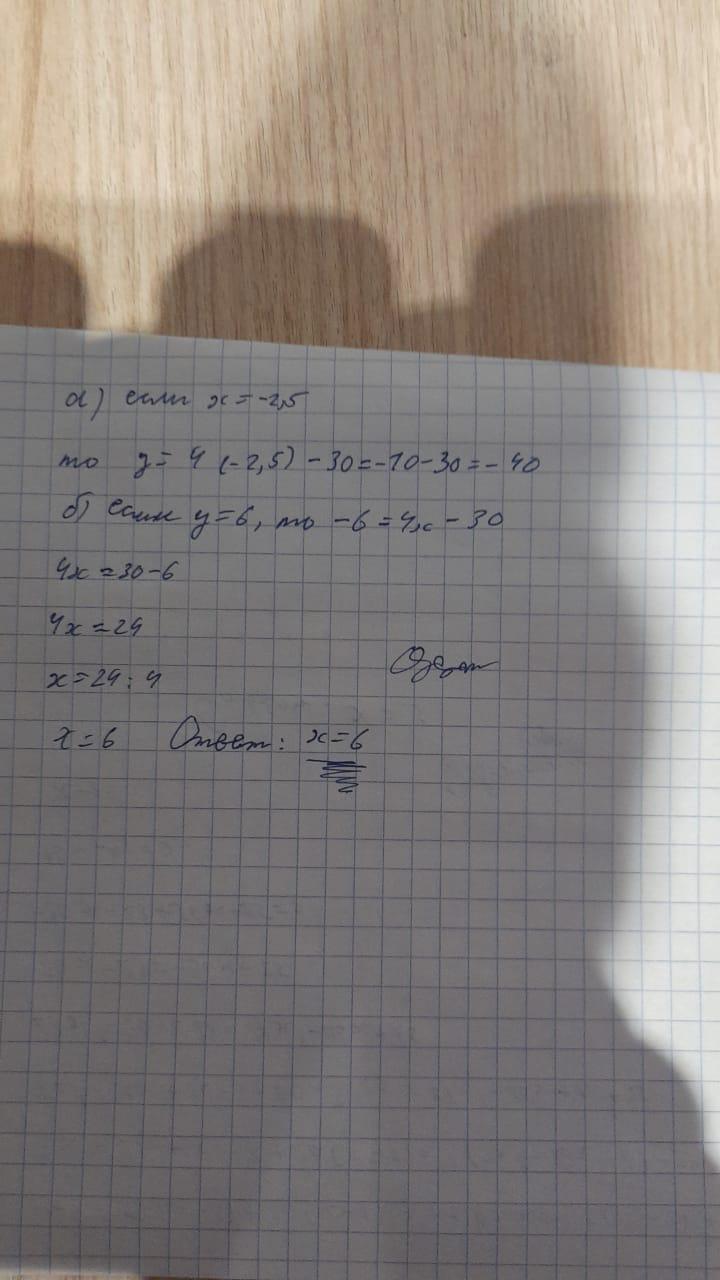 а) если x = -2,5
то y = 4 (-2,5) - 30 = -10 - 30 = - 40
б) если y = 6, то -6 = 4x - 30
4x = 30 - 6
4x = 24
x = 24 : 4
x = 6 Ответ: x = 6